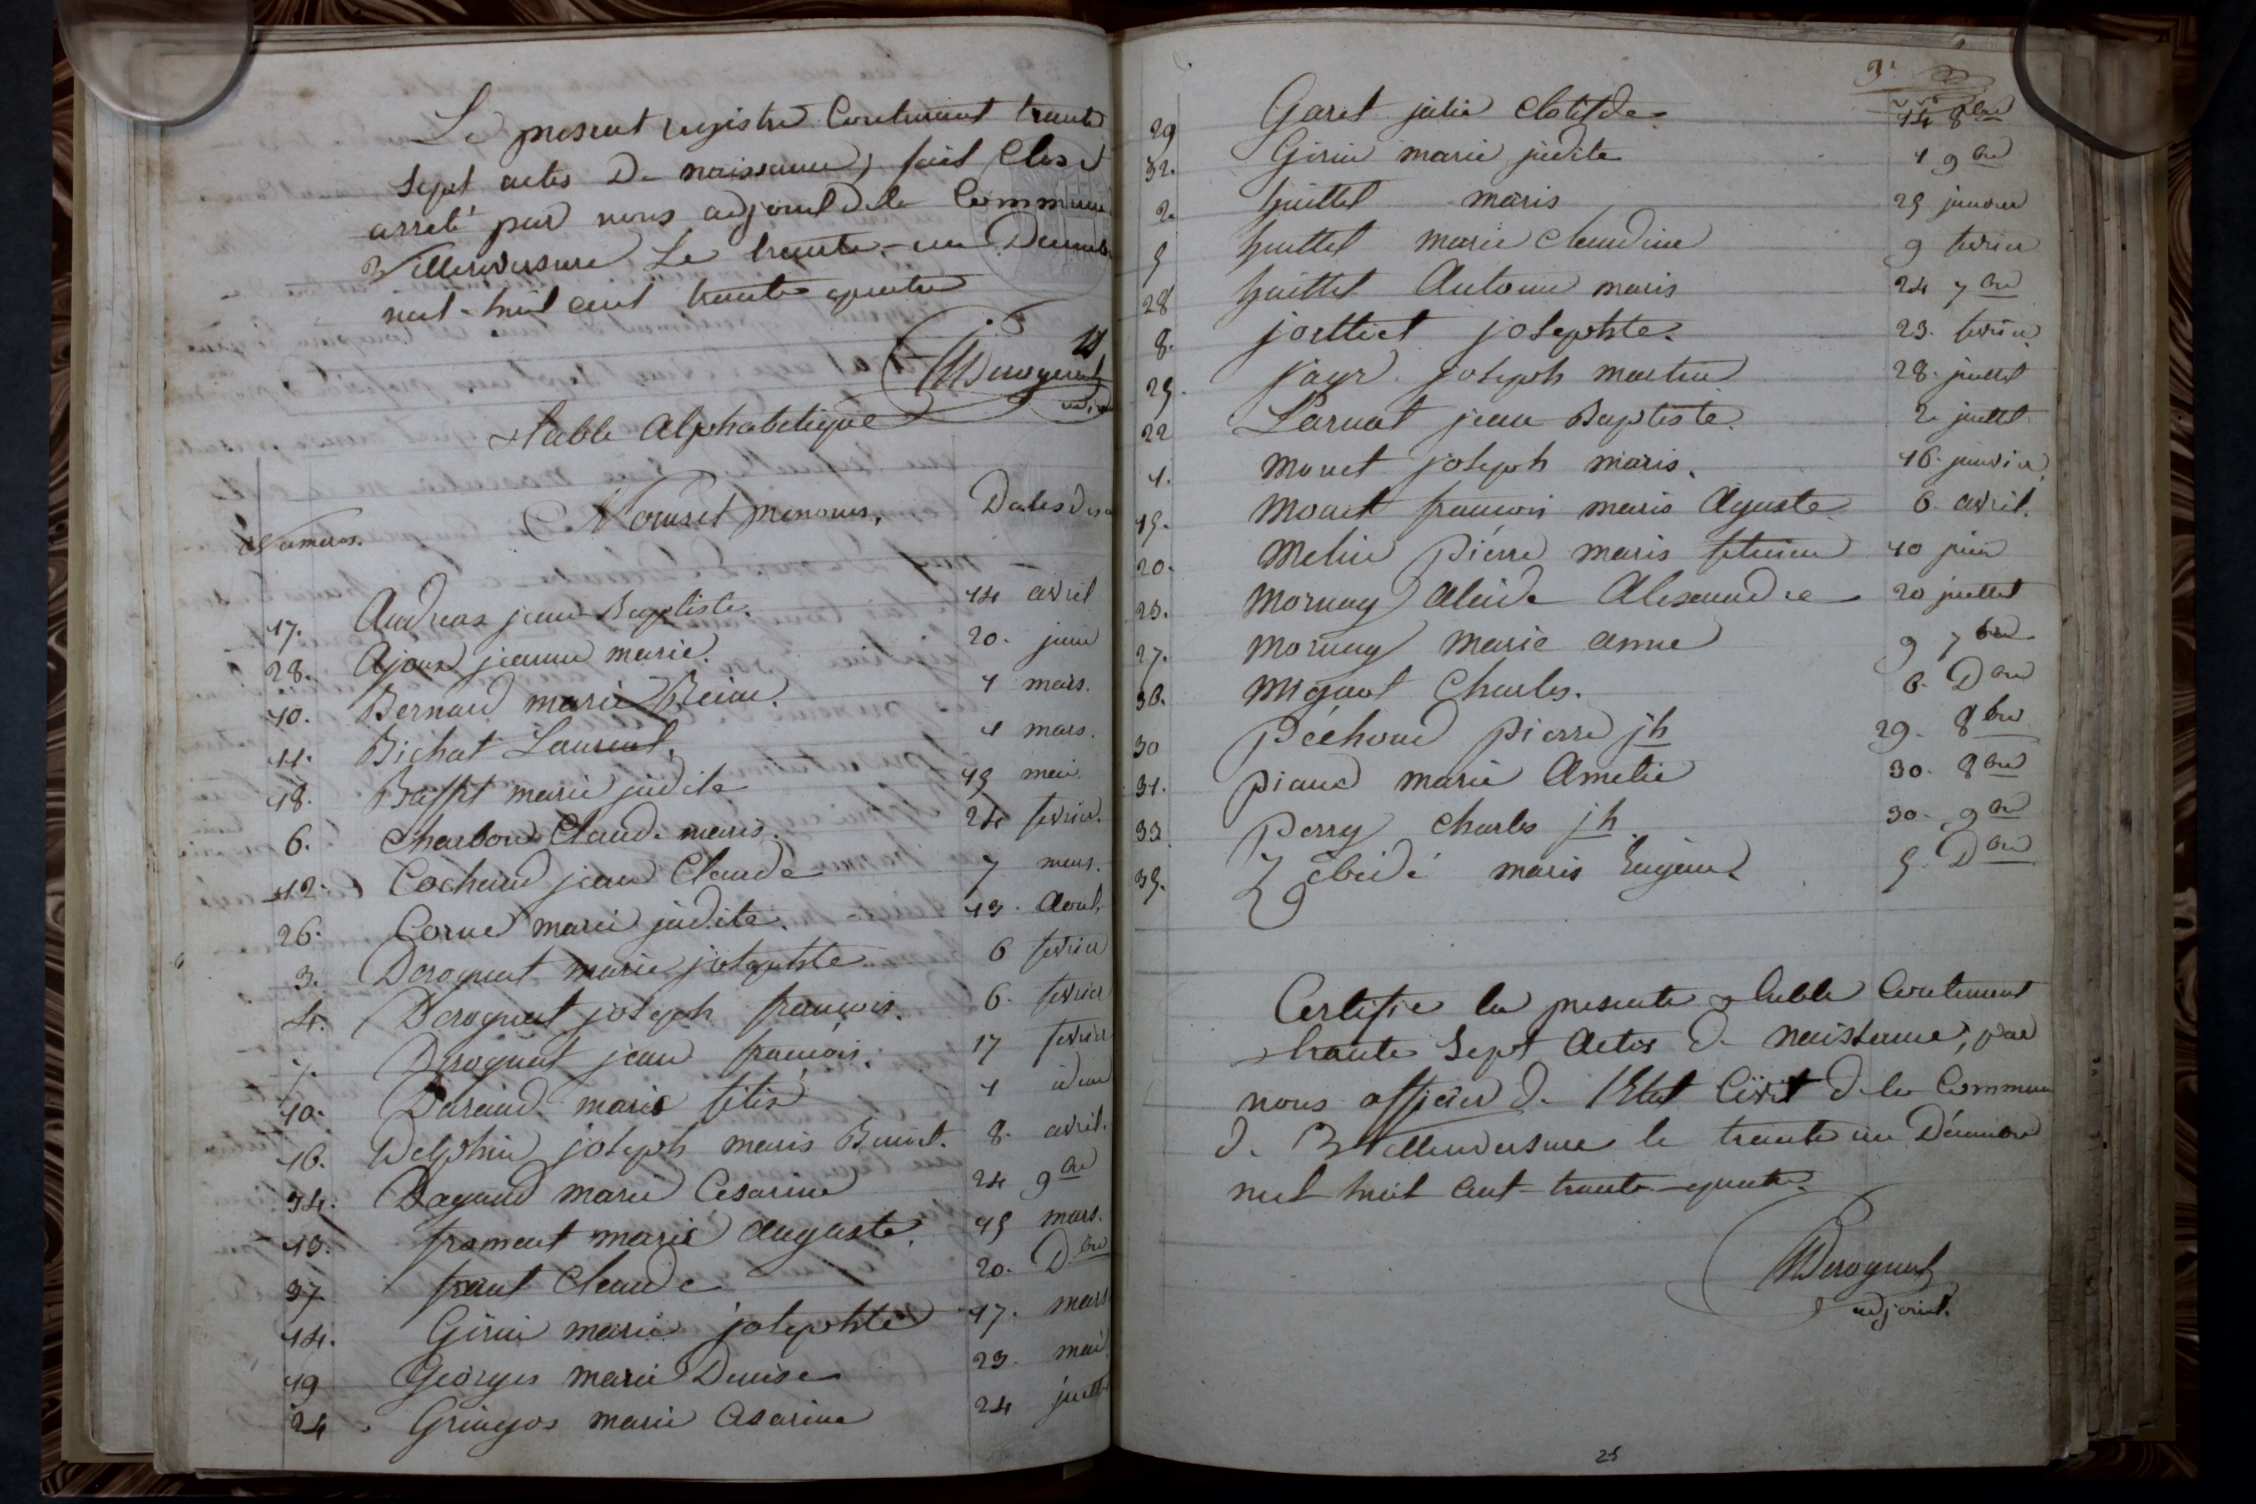 Le present registre Contenant trente
sept actes De naissance, fait Clos et
arreté par nous adjoint de la Commune
De Villereversure Le trente-un Decemb
mil-huit cent trente quatre
Derognat
adjoint
table Alphabetique
Numeros. Noms et prenoms, Dates des
17. Andreas jean Baptiste. 14 avril
28. Ajoux jeanne marie. 20. juin
10. Bernard marie 1 mars.
11. Bichat Laurent. 1 mars.
18. Buffet marie judite 19 mai
6. Charbon Claude marie. 24 fevrier.
12. Cochand jean Claude 7 mars.
26. Corne marie judite. 13. Aout.
3. Derognat marie josephte 6 fevrier
4. Derognat joseph francois. 6. fevrier
7. Derognat jean francois. 17 fevrier
10. Daraud marie 1 idem
16. Delphin joseph marie Benoit. 8. avril.
34. Dagaud marie Cesarine 24 9bre
13. froment marie auguste. 15 mars.
37 Claude 20. Dbre
14. Girin marie josephte 17. mars
19 Georges marie Denise 23. mai
24. Gringos marie Cesarine 24 juillet
29 Garet julie Clotilde. 14 8bre
32. Girin marie judite 1 9bre
2. huittet marie 25 janvier
5 huittet marie claudine 9 fevrier
28 huittet Antoine marie 24 7bre
8. josephte. 23. fevrier
25. jayr joseph martin 28. juillet
22 Larnat jean Baptiste. 2 juillet
1. Monet joseph marie. 16. janvier
15. Monet francois marie Aguste 6. avril.
20. Melin Pierre marie 10 juin
23. Mornay Alcide Alexandre 20 juillet
27. Mornay Marie anne 9 7bre
36. Migaut Charles. 6. Dbre
30 Péchoud Pierre jh 29. 8bre
31. Piand marie Amelie 30. 8bre
33. Perry Charles jh 30. 9bre
35. Zébédé marie Eugene 5. Dbre
Certifie la presente table Contenant
trente Sept Actes de naissance, par
nous officier de l'Etat Civil de la Commune
de Villereversure le trente un Décembre
mil huit cent trente-quatre.
Derognat
adjoint.
25